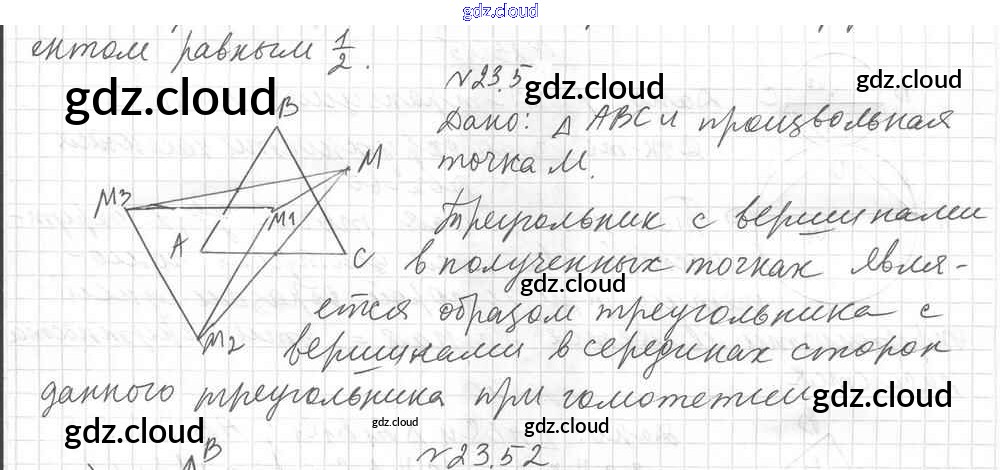 gdz.cloud
ентом равным 1/2.
№23.5
gdz.cloud
gdz.cloud
gdz.cloud
B
Дано: △ ABC и произвольная
M
точка M.
M3
M1
Треугольник с вершинами
A
C
в полученных точках явля-
gdz.cloud
ется образом треугольника с
M2
вершинами в серединах сторон
данного треугольника при гомотетии
gdz.cloud
gdz.cloud
gdz.cloud
gdz.cloud
B
№23.52